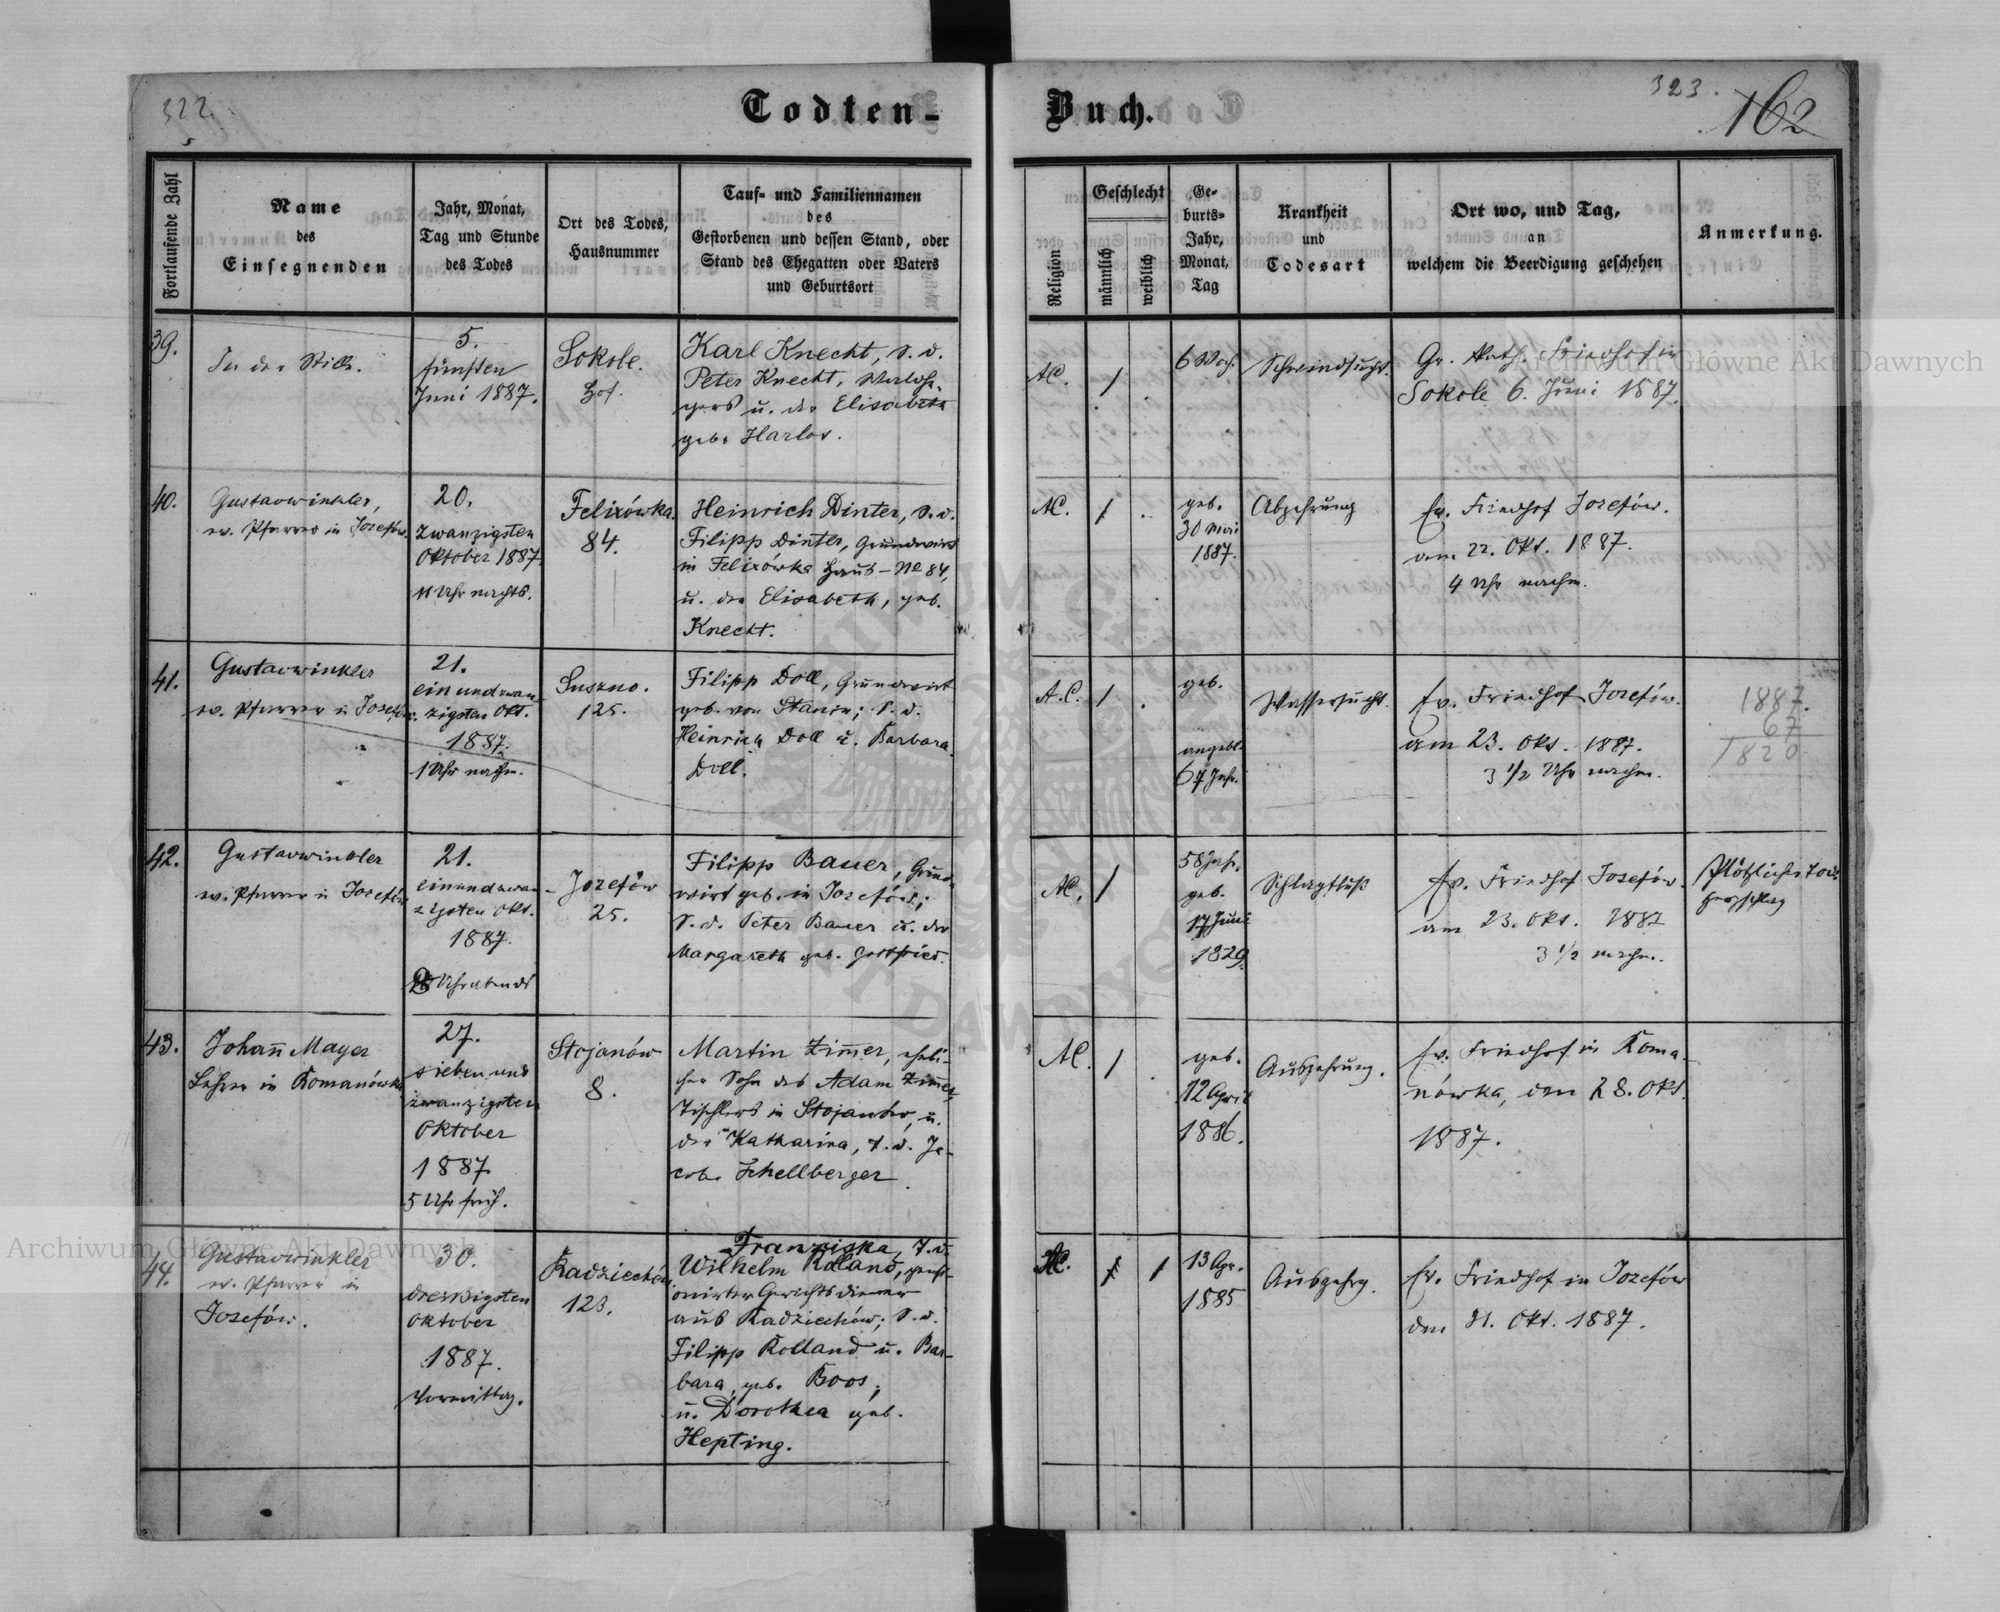 322.
Todten-
Buch.
323.
162
Fortlaufende Zahl
Name
des
Einsegnenden
Jahr, Monat,
Tag und Stunde
des Todes
Ort des Todes,
Hausnummer
Tauf- und Familiennamen
des
Gestorbenen und dessen Stand, oder
Stand des Ehegatten oder Vaters
und Geburtsort
Religion
Geschlecht
männlich
weiblich
Ge-
burts-
Jahr,
Monat,
Tag
Krankheit
und
Todesart
Ort wo, und Tag,
an
welchem die Beerdigung geschehen
Anmerkung.
39.
In der Stille.
5.
fünften
Juni 1887.
Sokole.
Hof.
Karl Knecht, S. d.
Peter Knecht,
u. der Elisabeth
geb. Harlos.
AC.
1
6 Woch.
Schwindsucht.
Gr. Kath. Friedhof in
Sokole 6. Juni 1887.
40.
Gustav Winkler,
ev. Pfarrer in Josefów.
20.
Zwanzigsten
Oktober 1887.
11 Uhr nachts.
Felixówka.
84.
Heinrich Dinter, S. d.
Filipp Dinter, Grundwirt
in Felixówka Haus-No 84,
u. der Elisabeth, geb.
Knecht.
AC.
1
geb.
30 Mai
1887.
Abzehrung
Ev. Friedhof Josefów.
am 22. Okt. 1887.
4 Uhr nachm.
41.
Gustav Winkler
ev. Pfarrer in Josefów.
21.
einundzwan-
zigsten Okt.
1887.
1 Uhr nachm.
Suszno.
125.
Filipp Doll, Grundwirt
geb. von Stanin; S. d.
Heinrich Doll u. Barbara
Doll.
A.C.
1
geb.
angebl.
67 Jahr.
Wassersucht.
Ev. Friedhof Josefów.
am 23. Okt. 1887.
3 1/2 Uhr nachm.
1887.
67
1820
42.
Gustav Winkler
ev. Pfarrer in Josefów
21.
einundzwan-
zigsten Okt.
1887.
Uhr abends
Jozefów
25.
Filipp Bauer, Grund-
wirt geb. in Josefów;
S. d. Peter Bauer u. der
Margareth geb. Gottfried.
AC.
1
58 Jahr.
geb.
17 Juni
1829.
Schlagfluß
Ev. Friedhof Josefów.
am 23. Okt. 1887
3 1/2 nachm.
Plötzlicher Tod
Herzschlag
43.
Johan̄ Mayer
Lehrer in Romanówka
27.
sieben und
zwanzigsten
Oktober
1887
5 Uhr früh.
Stojanów
8.
Martin Zim̄er, eheli-
cher Sohn des Adam Zim̄er
Tischlers in Stojanów, u.
der Katharina, T. d. Ja-
cob Schellberger.
AC.
1
geb.
12 April
1886.
Auszehrung.
Ev. Friedhof in Roma-
nówka, den 28. Okt.
1887.
44.
Gustav Winkler
ev. Pfarrer in
Josefów.
30.
dreißigsten
Oktober
1887.
Vormittag.
Radziechów
123.
Franziska, T. d.
Wilhelm Rolland, pensi-
onirter Gerichtsdiener
aus Radziechów; S. d.
Filipp Rolland u. Bar-
bara, geb. Boos;
u. Dorothea geb.
Hepting.
AC.
1
1
13 Apr.
1885
Auszehrg.
Ev. Friedhof in Jozefów
den 31. Okt. 1887.
Archiwum Główne Akt Dawnych
Archiwum Główne Akt Dawnych